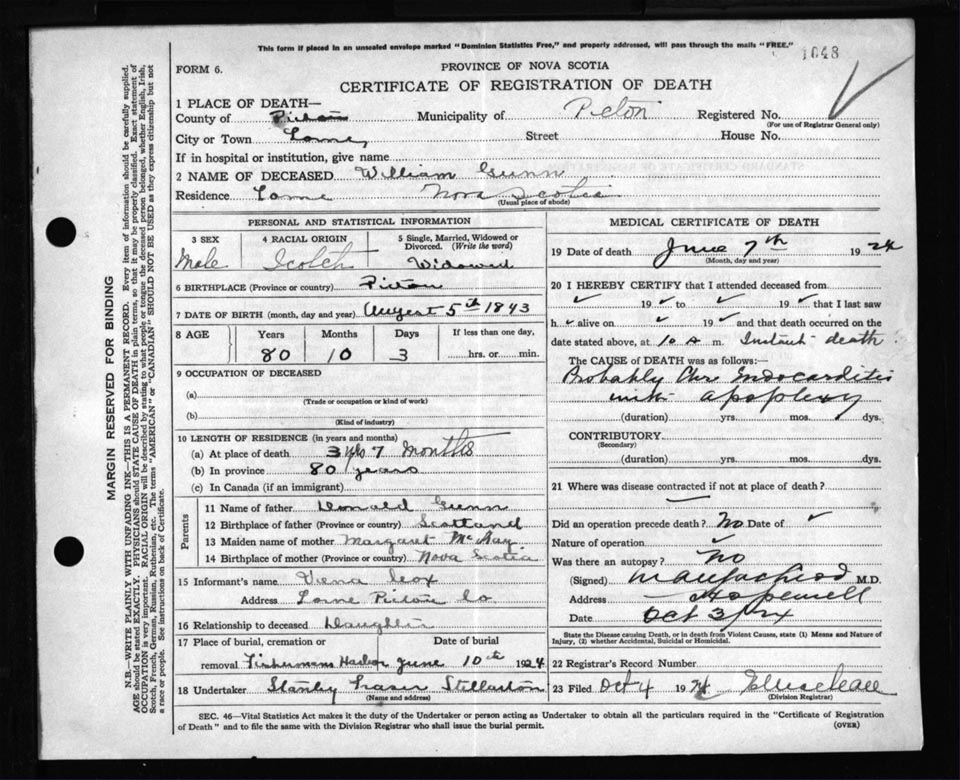 This form if placed in an unsealed envelope marked "Dominion Statistics Free," and properly addressed, will pass through the mails "FREE."
1648
FORM 6.
PROVINCE OF NOVA SCOTIA
CERTIFICATE OF REGISTRATION OF DEATH
1 PLACE OF DEATH—
County of Pictou Municipality of Pictou Registered No.
(For use of Registrar General only)
City or Town Lorne Street House No.
If in hospital or institution, give name
2 NAME OF DECEASED William Gunn
Residence Lorne Nova Scotia
(Usual place of abode)
PERSONAL AND STATISTICAL INFORMATION
3 SEX Male
4 RACIAL ORIGIN Scotch
5 Single, Married, Widowed or Divorced. (Write the word) Widowed
6 BIRTHPLACE (Province or country) Pictou
7 DATE OF BIRTH (month, day and year) August 5th 1843
8 AGE Years Months Days If less than one day,
80 10 3 hrs. or min.
9 OCCUPATION OF DECEASED
(a)
(Trade or occupation or kind of work)
(b)
(Kind of industry)
10 LENGTH OF RESIDENCE (in years and months)
(a) At place of death 3 yrs 7 Months
(b) In province 80 years
(c) In Canada (if an immigrant)
Parents
11 Name of father Donald Gunn
12 Birthplace of father (Province or country) Scotland
13 Maiden name of mother Margaret McKay
14 Birthplace of mother (Province or country) Nova Scotia
15 Informant's name Cox
Address Lorne Pictou Co
16 Relationship to deceased Daughter
17 Place of burial, cremation or Date of burial
removal Fishermans Harbor June 10th 1924
18 Undertaker Stanley Fraser Stellarton
(Name and address)
MEDICAL CERTIFICATE OF DEATH
19 Date of death June 7th 1924
(Month, day and year)
20 I HEREBY CERTIFY that I attended deceased from
✓ 19 ✓ to ✓ 19 ✓ that I last saw
h ✓ alive on ✓ 19 ✓ and that death occurred on
date stated above, at 10 A m. Instant death
The CAUSE of DEATH was as follows:—
Probably Chr Endocarditis
with apoplexy
(duration) yrs. mos. dys.
CONTRIBUTORY
(Secondary)
(duration) yrs. mos. dys.
21 Where was disease contracted if not at place of death?
Did an operation precede death? No Date of ✓
Nature of operation ✓
Was there an autopsy? No
(Signed) M.D.
Address Hopewell
Date Oct 3
State the Disease causing Death, or in death from Violent Causes, state (1) Means and Nature of Injury, (2) whether Accidental, Suicidal or Homicidal.
22 Registrar's Record Number
23 Filed Oct 4 1924
(Division Registrar)
SEC. 46—Vital Statistics Act makes it the duty of the Undertaker or person acting as Undertaker to obtain all the particulars required in the "Certificate of Registration
of Death" and to file the same with the Division Registrar who shall issue the burial permit. (OVER)
MARGIN RESERVED FOR BINDING
N.B.—WRITE PLAINLY WITH UNFADING INK—THIS IS A PERMANENT RECORD. Every item of information should be carefully supplied.
AGE should be stated EXACTLY. PHYSICIANS should STATE CAUSE OF DEATH in plain terms, so that it may be properly classified. Exact statement of
OCCUPATION is very important. RACIAL ORIGIN will be described by stating to what people or tongue the deceased person belonged, whether English, Irish,
Scotch, French, German, Russian, Ruthenian, etc. The terms "AMERICAN" or "CANADIAN" SHOULD NOT BE USED as they express citizenship but not
a race or people. See instructions on back of Certificate.